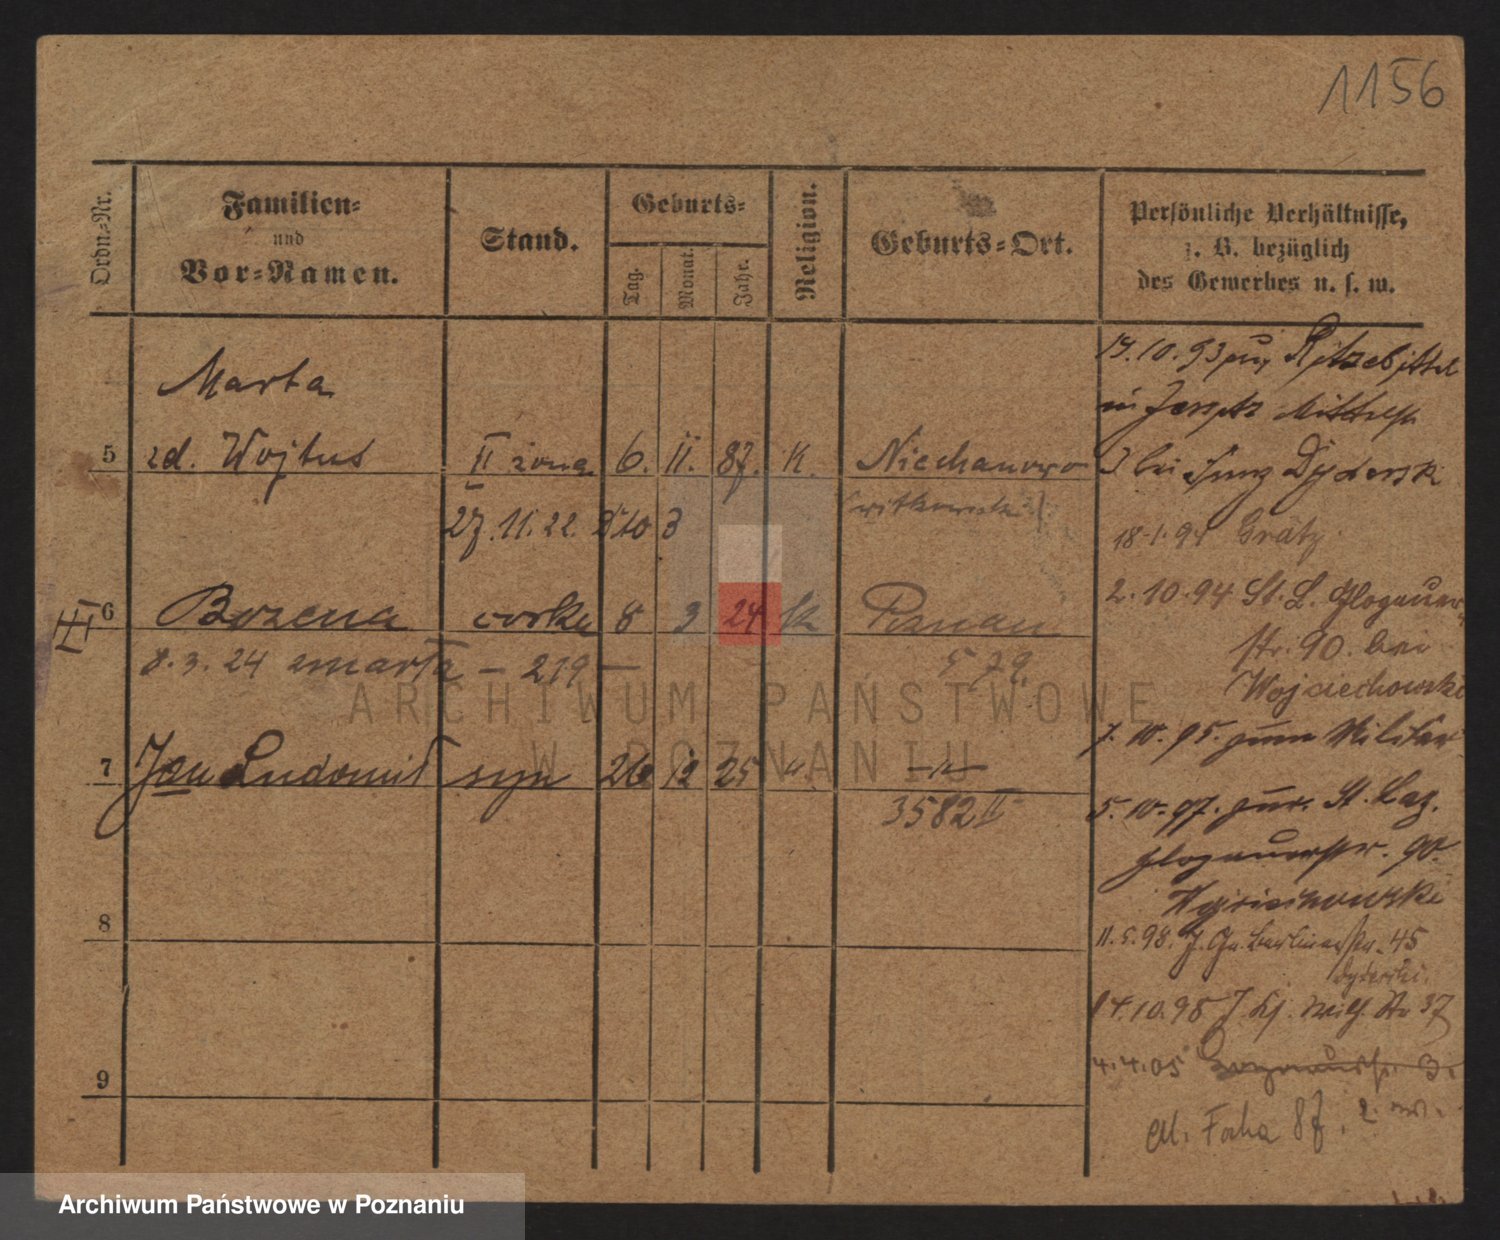 1156
Ordn.-Nr.
Familien-
und
Vor-Namen.
Stand.
Geburts-
Tag.
Monat.
Jahr.
Religion.
Geburts-Ort.
Persönliche Verhältnisse,
z. B. bezüglich
des Gewerbes u. s. w.
Marta
5 zd. Wojtus II żona 6. 11. 87. K. Niechanowo
27. 11. 22. dto 3 witkowski
6 Bozena corka 8 3 24 K Poznan
III
8. 3. 24 zmarła – 219 – 579
7 Jan Ludomił syn 26 12 25 " –"–
3582 II
8
9
10. 93 zu Ritzebüttel
in
3 bei Dyderski
18.1.94 Grätz
2. 10. 94 St. L. Glogauer
str. 90. bei
Wojciechowski
7. 10. 95. zum Militär
5. 10. 97. zur. St. Laz.
Glogauerstr. 90.
Wojciechowski
11. 5. 98. J. Berlinerstr. 45
Dyderski.
14. 10. 98 J. 37
4. 4. 05 3.
M. Focha 87.
ARCHIWUM PAŃSTWOWE
W POZNANIU
Archiwum Państwowe w Poznaniu